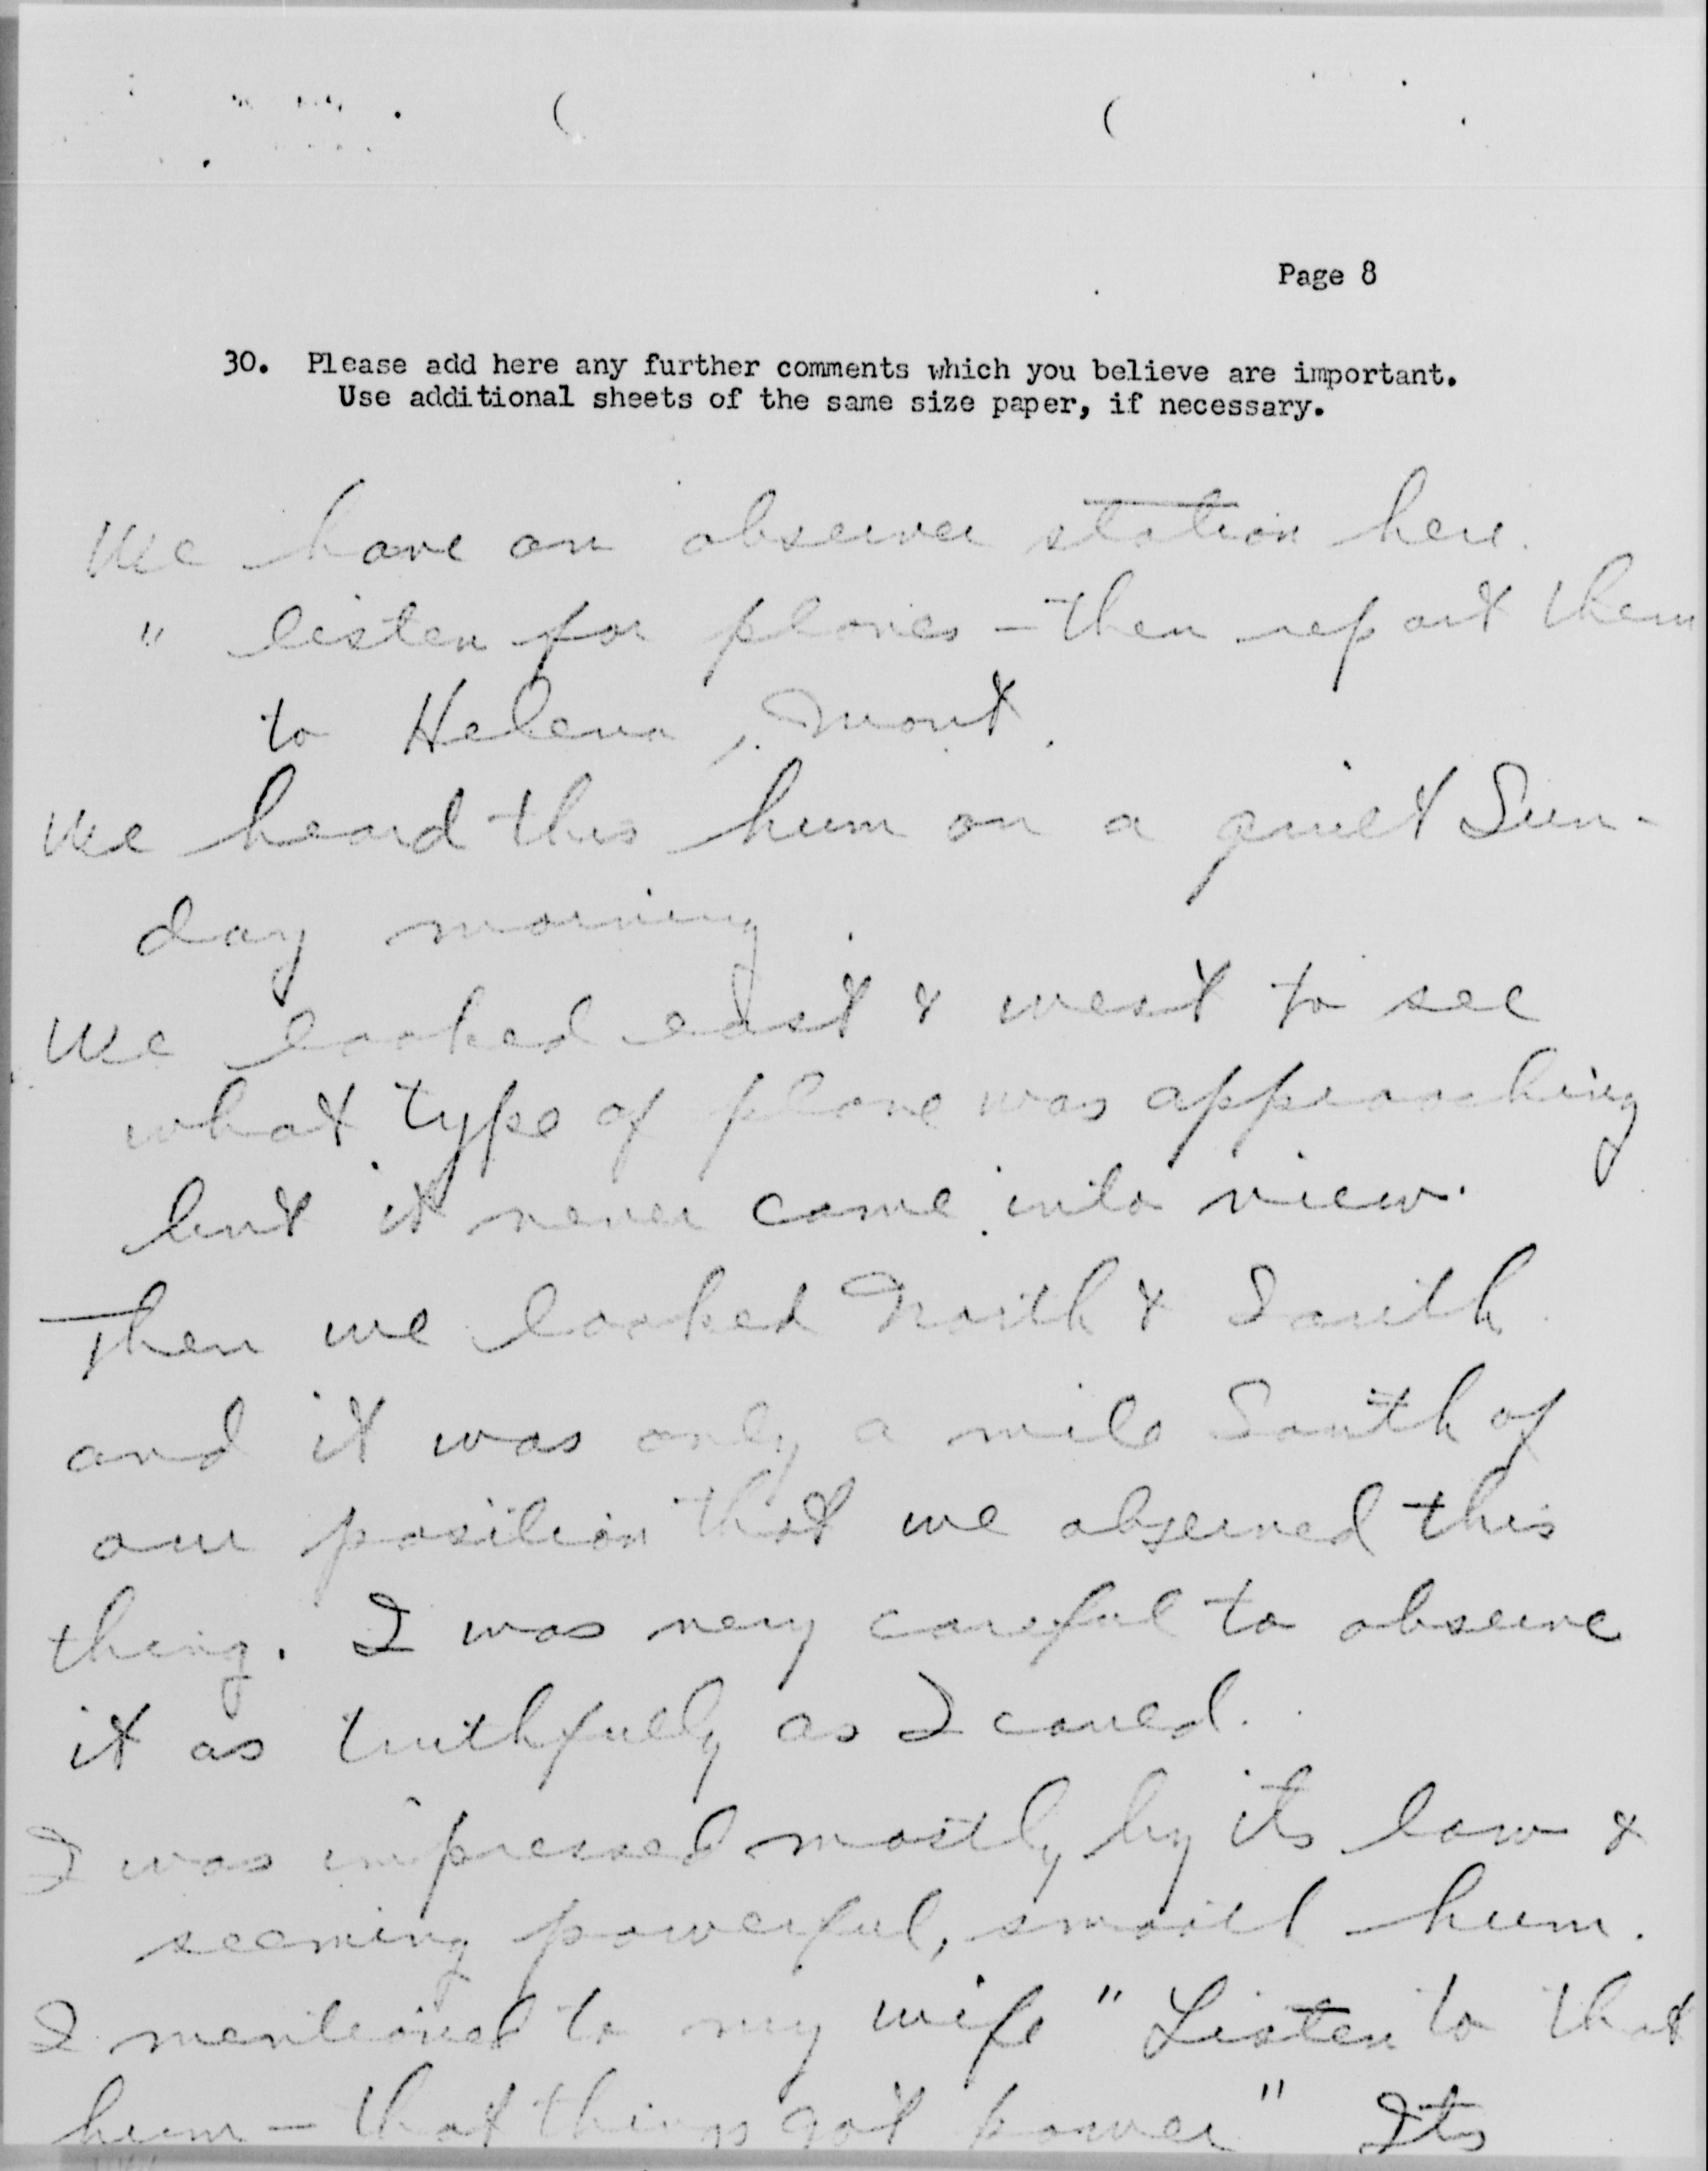 Page 8
30. Please add here any further comments which you believe are important.
Use additional sheets of the same size paper, if necessary.
We have an observer station here.
" listen for planes - then report them
to Helena, Mont.
We heard this hum on a quiet Sun-
day morning.
We looked east & west to see
what type of plane was approaching
but it never came into view.
Then we looked North & South
and it was only a mile South of
our position that we observed this
thing. I was very careful to observe
it as truthfully as I could.
I was impressed mostly by its low &
seeming powerful, smooth hum.
I mentioned to my wife "Listen to that
hum - that things got power" Its